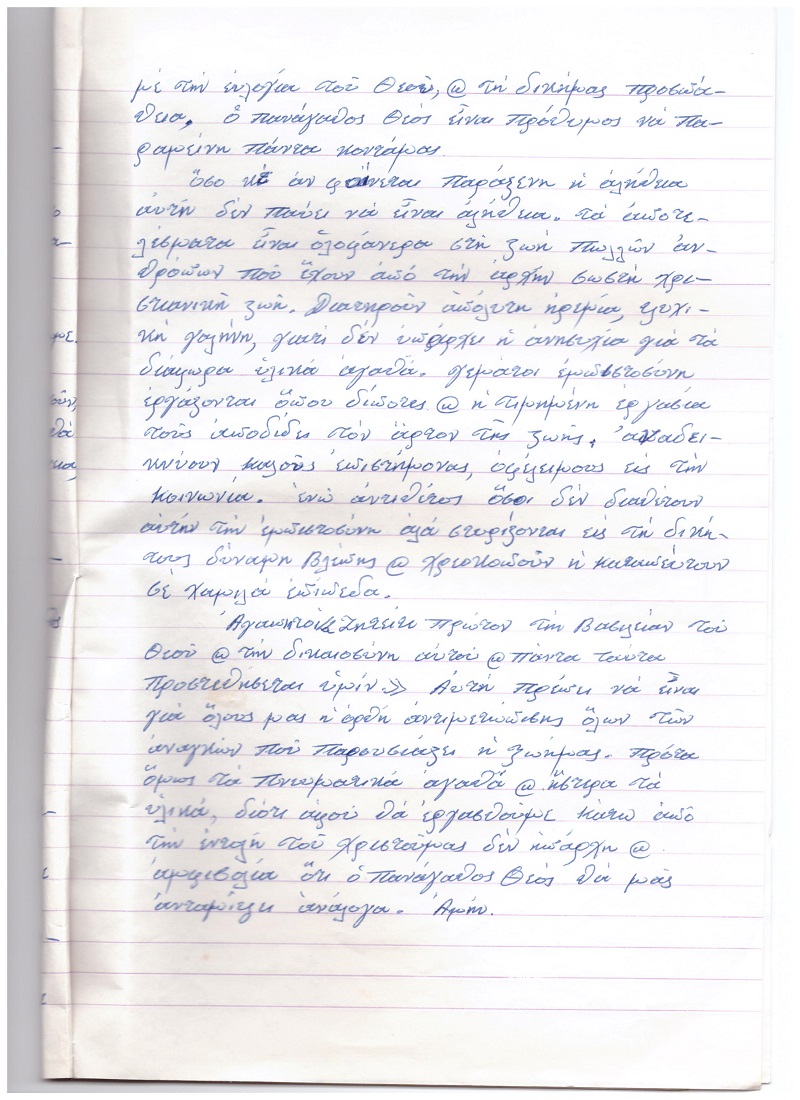 μέ τήν εὐλογία τοῦ Θεοῦ, @ τή δικήμας προσπά-
θεια, ὁ πανάγαθος Θεός εἶναι πρόθυμος νά πα-
ραμείνη πάντα κοντάμας.
Ὅσο κι ἄν φαίνεται παράξενη ἡ ἀλήθεια
αὐτή δέν παύει νά εἶναι ἀλήθεια. τά ἀποτε-
λέσματα εἶναι ὁλοφάνερα στή ζωή πολλῶν ἀν-
θρώπων πού ἔχουν ἀπό τήν ἀρχήν σωστή χρι-
στιανική ζωή. Διατηροῦν ἀπόλυτη ἠρεμία, ψυχι-
κή γαλήνη, γιατί δέν ὑπάρχει ἡ ἀνησυχία γιά τά
διάφωρα ὑλικά ἀγαθά. γεμάτοι ἐμπιστοσύνη
ἐργάζονται ὅπου δίποτες @ ἡ τιμημένη ἐργασία
τούς ἀποδίδει τόν ἄρτον τῆς ζωῆς. ἀναδει-
κνύουν καλούς ἐπιστήμονας, ὀφέλειμους εἰς τήν
κοινωνία. ἐνῶ ἀντιθέτος ὅσοι δέν διαθέτουν
αὐτήν τήν ἐμπιστοσύνη ἀλά στυρίζονται εἰς τή δική-
τους δύναμη βλέπης @ χρεοκοποῦν ἤ καταπέυτουν
σέ χαμηλά ἐπίπεδα.
Ἀγαπητοί << Ζητεῖτε πρῶτον τήν Βασιλείαν τοῦ
Θεοῦ @ τήν δικαιοσύνη αὐτοῦ @ πάντα ταύτα
προστεθήσεται ὑμίν.>> Αὐτή πρέπει νά εἶναι
γιά ὅλους μας ἡ ὀρθή ἀντιμετώπισης ὅλων τῶν
ἀναγκῶν πού παρουσιάζει ἡ ζωήμας. πρῶτα
ὅμως τά πνευματικά ἀγαθά @ ἥστερα τά
ὑλικά, διότι ἀφού θά ἐργασθοῦμε κάτω ἀπό
τήν ἐντολή τοῦ Χριστοῦμας δέν ἠπάρχη @
ἀμφιβολία ὅτι ὁ πανάγαθος Θεός θά μᾶς
ἀνταμοίψει ἀνάλογα. Ἀμήν.